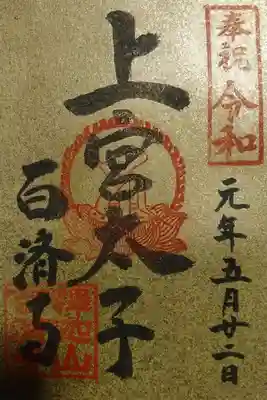 奉祝 令和
元年五月廿二日
上宮太子
百濟寺